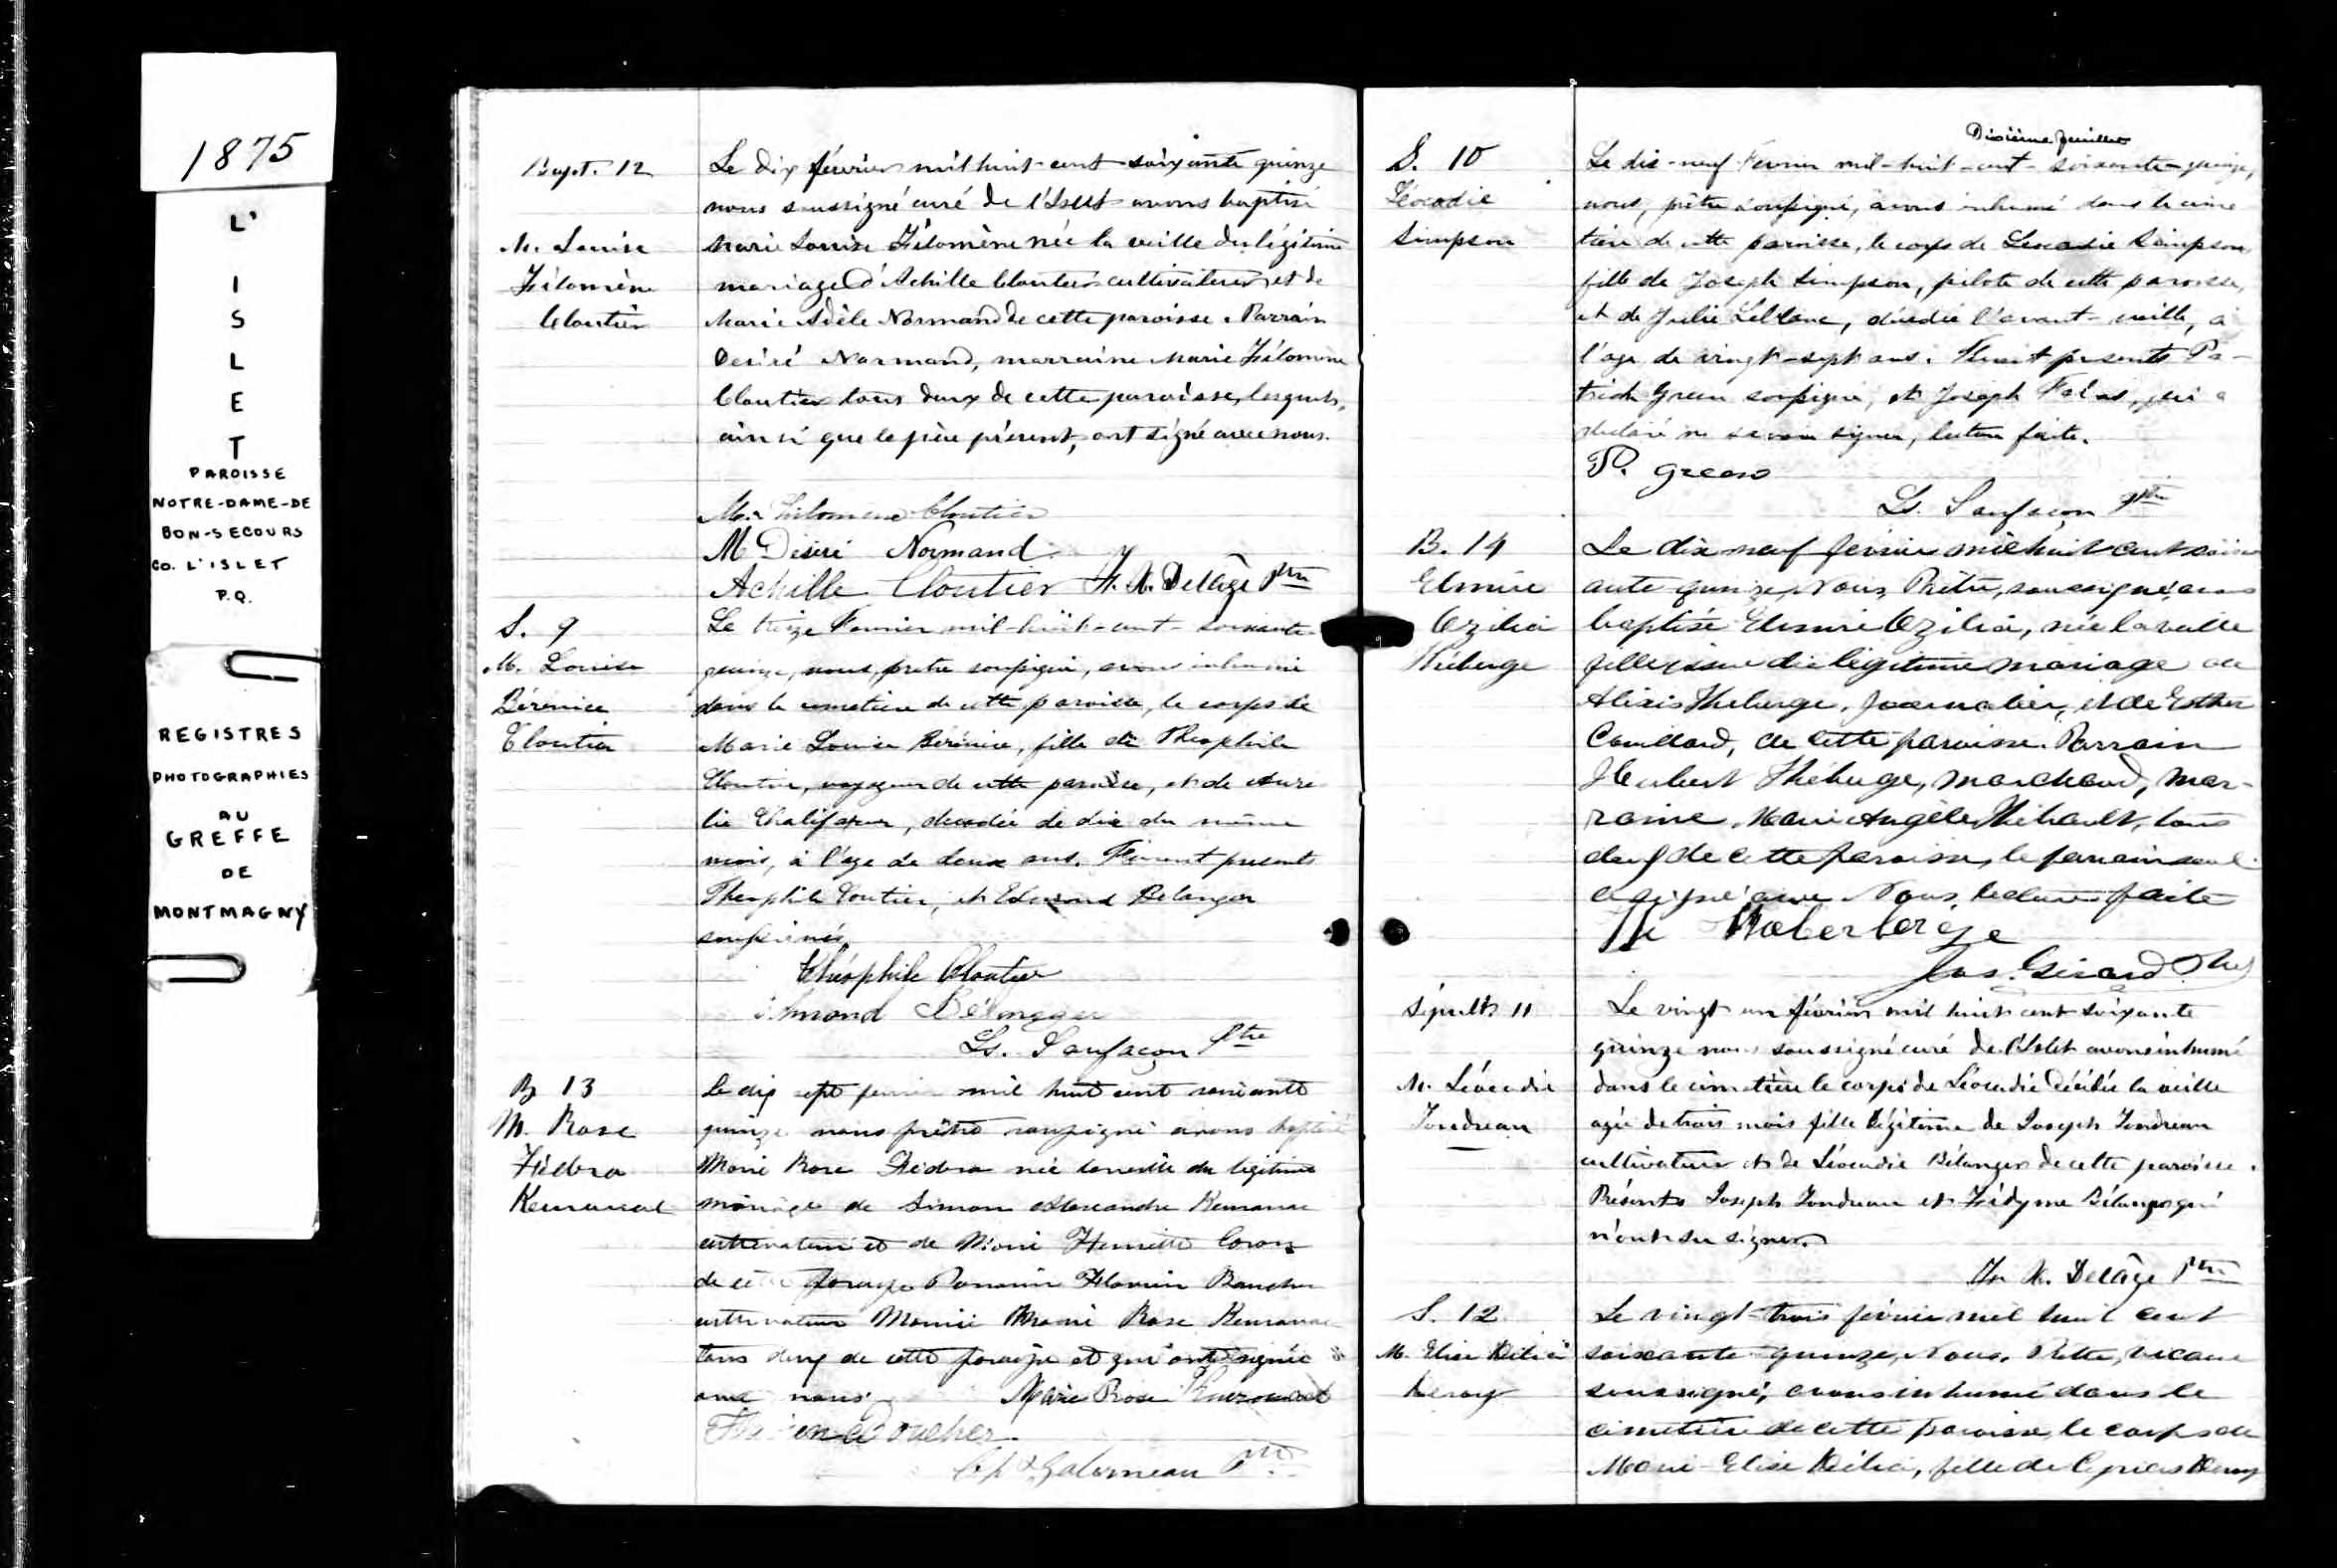 1875
L'
I
S
L
E
T
PAROISSE
NOTRE-DAME-DE
BON-SECOURS
CO. L'ISLET
P.Q.
REGISTRES
PHOTOGRAPHIES
AU
GREFFE
DE
MONTMAGNY
Bapt. 12
M. Louise
Filomène
Cloutier
Le dix février mil huit cent soixante quinze
nous soussigné curé de l'Islet avons baptisé
Marie Louise Filomène née la veille du légitime
mariage d'Achille Cloutier cultivateur et de
Marie Adèle Normand de cette paroisse. Parrain
Desiré Normand, marraine Marie Filomène
Cloutier tous deux de cette paroisse, lesquels,
ainsi que le père présent, ont signé avec nous.
M. Philomene Cloutier
M Désiré Normand
Achille Cloutier F. X. Delâge Ptre
S. 9
M. Louise
Bérénice
Cloutier
Le treize Fevrier mil-huit-cent-soixante
quinze, nous, prêtre soussigné, avons inhumé
dans le cimetière de cette paroisse, le corps de
Marie Louise Bérénice, fille de Théophile
Cloutier, voyageur de cette paroisse, et de Aure
lie Chalifour, decedée le dix du même
mois, à l'age de deux ans. Furent presents
Theophile Cloutier, et Edmond Belanger
soussignés.
Théophile Cloutier
Edmond Bélanger
Ls. Sanfaçon Ptre
B 13
M. Rose
Fédora
Keurouack
Le dix sept fevrier mil huit cent soixante
quinze nous prêtre soussigné avons baptisé
Marie Rose Fédora née la veille du légitime
mariage de Simon Alexandre
cultivateur et de Marie Henriette Caron
de cette paroisse Parrain Boucher
cultivateur Marie Rose
tous deux de cette paroisse et qui ont signé
avec nous. Marie Rose
Boucher
Galarneau Ptre
Dixième feuillet
S. 10
Léocadie
Simpson
Le dix-neuf Fevrier mil-huit-cent-soixante-quinze,
nous, prêtre soussigné, avons inhumé dans le cime
tière de cette paroisse, le corps de Leocadie Simpson
fille de Joseph Simpson, pilote de cette paroisse,
et de Julie Leblanc, décédée l'avant-veille, à
l'age de vingt-sept ans. Furent presents Pa-
trick Green soussigné, et Joseph qui a
déclaré ne savoir signer, lecture faite.
P. Green
Ls. Sanfaçon Ptre
B. 14
Elmire
Ozilia
Théberge
Le dix neuf fevrier mil huit cent soix
ante quinze, Nous, Prêtre, soussigné, avons
baptisé Elmire Ozilia, née la veille
fille issue du légitime mariage de
Alexis Theberge, journalier, et de Esther
Couillard, de cette paroisse. Parrain
Hubert Théberge, marchand, mar-
raine, Marie Angèle Thibault, tous
deux de cette paroisse, le parrain seul
a signé avec Nous, lecture faite
Jos. Girard Ptre
Sépult. 11
M. Léocadie
Tondreau
Le vingt un février mil huit cent soixante
quinze nous soussigné curé de l'Islet avons inhumé
dans le cimetière le corps de Léocadie décédée la veille
agée de trois mois fille légitime de Joseph Tondreau
cultivateur et de Léocadie Bélanger de cette paroisse.
Présents Joseph Tondreau et Bélanger qui
n'ont su signer.
F. X. Delâge Ptre
S. 12
M. Elise Délia
Leroy
Le vingt-trois février mil huit cent
soixante-quinze, Nous, Prêtre, vicaire
soussigné, avons inhumé dans le
cimetière de cette paroisse, le corps de
Marie-Elise Délia, fille de Cyprien Leroy